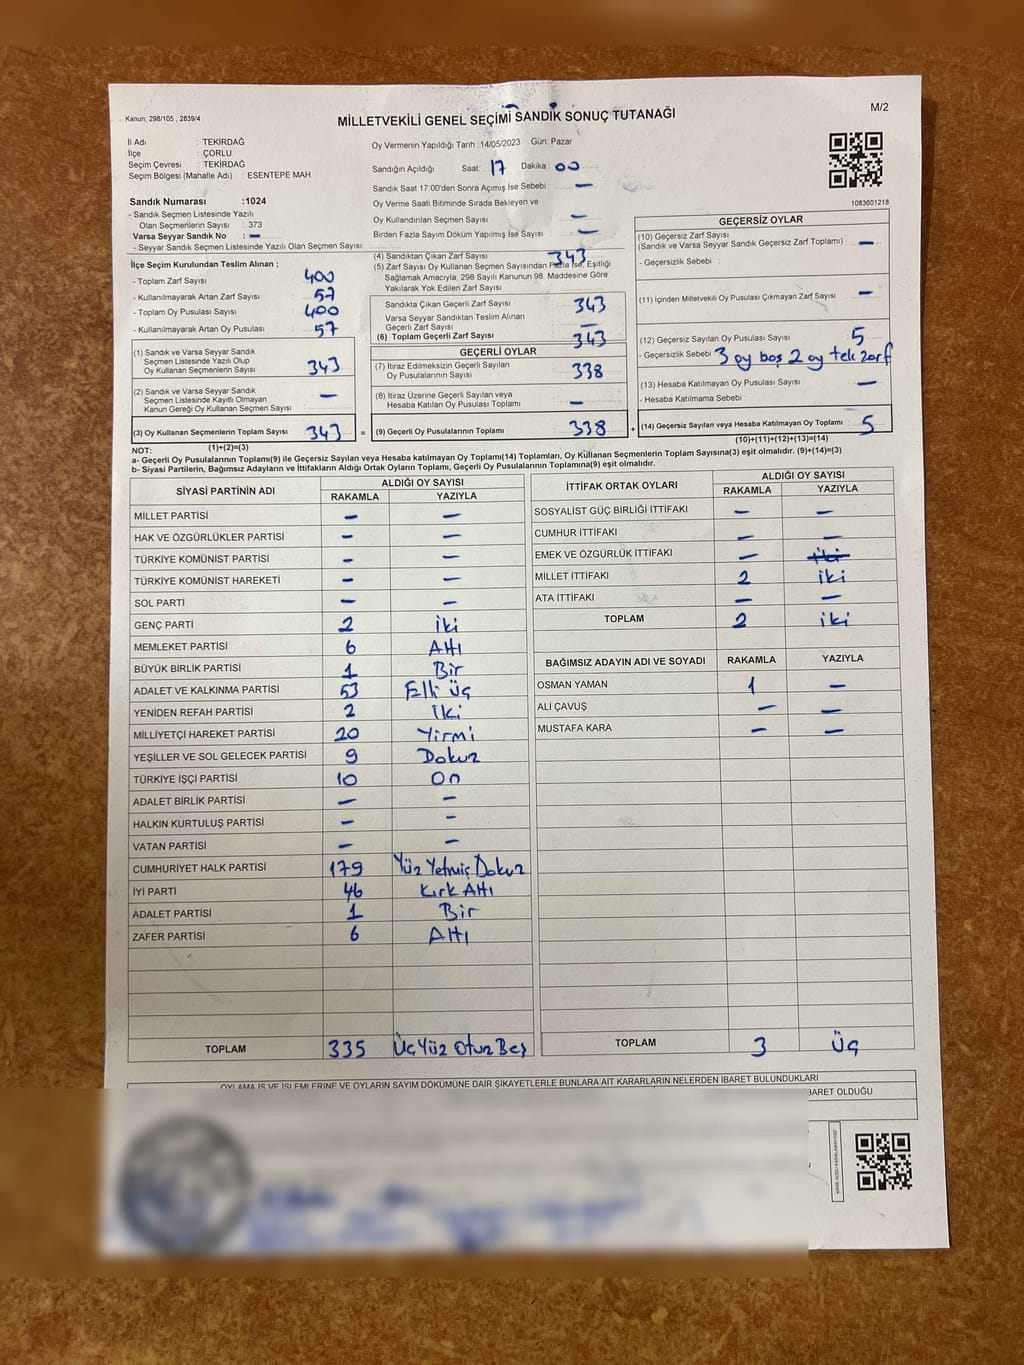 Kanun; 298/105 , 2839/4
MİLLETVEKİLİ GENEL SEÇİMİ SANDIK SONUÇ TUTANAĞI
M/2
İl Adı : TEKİRDAĞ
İlçe : ÇORLU
Seçim Çevresi : TEKİRDAĞ
Seçim Bölgesi (Mahalle Adı) : ESENTEPE MAH
Sandık Numarası :1024
- Sandık Seçmen Listesinde Yazılı
Olan Seçmenlerin Sayısı : 373
Varsa Seyyar Sandık No : –
- Seyyar Sandık Seçmen Listesinde Yazılı Olan Seçmen Sayısı:
Oy Vermenin Yapıldığı Tarih :14/05/2023 Gün: Pazar
Sandığın Açıldığı Saat: 17 Dakika: 00
Sandık Saat 17:00'den Sonra Açımış İse Sebebi : –
Oy Verme Saati Bitiminde Sırada Bekleyen ve
Oy Kullandırılan Seçmen Sayısı : –
Birden Fazla Sayım Döküm Yapılmış İse Sayısı : –
1083601218
İlçe Seçim Kurulundan Teslim Alınan ;
- Toplam Zarf Sayısı : 400
- Kullanılmayarak Artan Zarf Sayısı : 57
- Toplam Oy Pusulası Sayısı : 400
- Kullanılmayarak Artan Oy Pusulası : 57
(1) Sandık ve Varsa Seyyar Sandık
Seçmen Listesinde Yazılı Olup
Oy Kullanan Seçmenlerin Sayısı : 343
(2) Sandık ve Varsa Seyyar Sandık
Seçmen Listesinde Kayıtlı Olmayan
Kanun Gereği Oy Kullanan Seçmen Sayısı : –
(3) Oy Kullanan Seçmenlerin Toplam Sayısı : 343
(1)+(2)=(3)
(4) Sandıktan Çıkan Zarf Sayısı : 343
(5) Zarf Sayısı Oy Kullanan Seçmen Sayısından Fazla İse, Eşitliği
Sağlamak Amacıyla, 298 Sayılı Kanunun 98. Maddesine Göre
Yakılarak Yok Edilen Zarf Sayısı :
Sandıkta Çıkan Geçerli Zarf Sayısı : 343
Varsa Seyyar Sandıktan Teslim Alınan
Geçerli Zarf Sayısı : –
(6) Toplam Geçerli Zarf Sayısı : 343
GEÇERLİ OYLAR
(7) İtiraz Edilmeksizin Geçerli Sayılan
Oy Pusulalarının Sayısı : 338
(8) İtiraz Üzerine Geçerli Sayılan veya
Hesaba Katılan Oy Pusulası Toplamı : –
= (9) Geçerli Oy Pusulalarının Toplamı : 338
GEÇERSİZ OYLAR
(10) Geçersiz Zarf Sayısı
(Sandık ve Varsa Seyyar Sandık Geçersiz Zarf Toplamı) : –
- Geçersizlik Sebebi :
(11) İçinden Milletvekili Oy Pusulası Çıkmayan Zarf Sayısı : –
(12) Geçersiz Sayılan Oy Pusulası Sayısı : 5
- Geçersizlik Sebebi : 3 oy boş 2 oy tek zarf
(13) Hesaba Katılmayan Oy Pusulası Sayısı : –
- Hesaba Katılmama Sebebi :
+ (14) Geçersiz Sayılan veya Hesaba Katılmayan Oy Toplamı : 5
(10)+(11)+(12)+(13)=(14)
NOT:
a- Geçerli Oy Pusulalarının Toplamı(9) ile Geçersiz Sayılan veya Hesaba katılmayan Oy Toplamı(14) Toplamları, Oy Kullanan Seçmenlerin Toplam Sayısına(3) eşit olmalıdır. (9)+(14)=(3)
b- Siyasi Partilerin, Bağımsız Adayların ve İttifakların Aldığı Ortak Oyların Toplamı, Geçerli Oy Pusulalarının Toplamına(9) eşit olmalıdır.
SİYASİ PARTİNİN ADI ALDIĞI OY SAYISI
RAKAMLA YAZIYLA
MİLLET PARTİSİ – –
HAK VE ÖZGÜRLÜKLER PARTİSİ – –
TÜRKİYE KOMÜNİST PARTİSİ – –
TÜRKİYE KOMÜNİST HAREKETİ – –
SOL PARTİ – –
GENÇ PARTİ 2 iki
MEMLEKET PARTİSİ 6 Altı
BÜYÜK BİRLİK PARTİSİ 1 Bir
ADALET VE KALKINMA PARTİSİ 53 Elli üç
YENİDEN REFAH PARTİSİ 2 İki
MİLLİYETÇİ HAREKET PARTİSİ 20 Yirmi
YEŞİLLER VE SOL GELECEK PARTİSİ 9 Dokuz
TÜRKİYE İŞÇİ PARTİSİ 10 On
ADALET BİRLİK PARTİSİ – –
HALKIN KURTULUŞ PARTİSİ – –
VATAN PARTİSİ – –
CUMHURİYET HALK PARTİSİ 179 Yüz Yetmiş Dokuz
İYİ PARTİ 46 Kırk Altı
ADALET PARTİSİ 1 Bir
ZAFER PARTİSİ 6 Altı
TOPLAM 335 Üç Yüz Otuz Beş
İTTİFAK ORTAK OYLARI ALDIĞI OY SAYISI
RAKAMLA YAZIYLA
SOSYALİST GÜÇ BİRLİĞİ İTTİFAKI – –
CUMHUR İTTİFAKI – –
EMEK VE ÖZGÜRLÜK İTTİFAKI – iki
MİLLET İTTİFAKI 2 iki
ATA İTTİFAKI – –
TOPLAM 2 iki
BAĞIMSIZ ADAYIN ADI VE SOYADI RAKAMLA YAZIYLA
OSMAN YAMAN 1 –
ALİ ÇAVUŞ – –
MUSTAFA KARA – –
TOPLAM 3 üç
OYLAMA İŞ VE İŞLEMLERİNE VE OYLARIN SAYIM DÖKÜMÜNE DAİR ŞİKAYETLERLE BUNLARA AİT KARARLARIN NELERDEN İBARET BULUNDUKLARI
BARET OLDUĞU